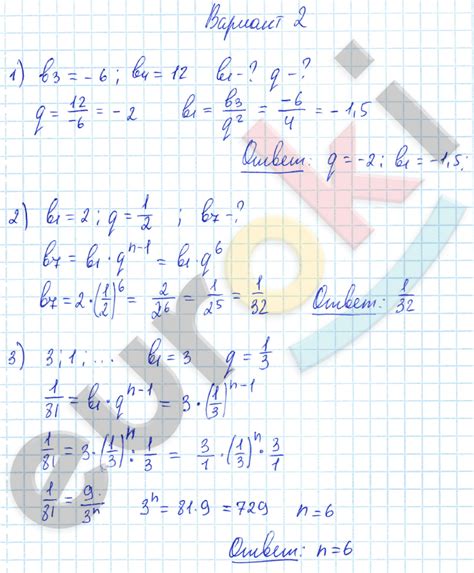 Вариант 2
1) b₃ = -6 ; b₄ = 12   b₁ - ?   q - ?
q = 12/-6 = -2   b₁ = b₃/q² = -6/4 = -1,5
Ответ: q = -2; b₁ = -1,5;
2) b₁ = 2 ; q = 1/2 ; b₇ - ?
b₇ = b₁ · qⁿ⁻¹ = b₁ q⁶
b₇ = 2 · (1/2)⁶ = 2/2⁶ = 1/2⁵ = 1/32   Ответ: 1/32
3) 3 ; 1 ; ...   b₁ = 3   q = 1/3
1/81 = b₁ · qⁿ⁻¹ = 3 · (1/3)ⁿ⁻¹
1/81 = 3 · (1/3)ⁿ : 1/3 = 3/1 · (1/3)ⁿ · 3/1
1/81 = 9/3ⁿ   3ⁿ = 81·9 = 729   n = 6
Ответ: n = 6
euroki